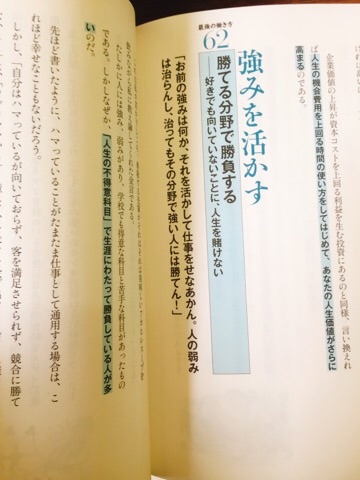 企業価値の上昇が資本コストを上回る利益を生む投資にあるのと同様、言い換えれ
ば人生の機会費用を上回る時間の使い方をしてはじめて、あなたの人生価値がさらに
高まるのである。
最後の働き方
62
強みを活かす
勝てる分野で勝負する
――好きでも向いていないことに、人生を賭けない
「お前の強みは何か、それを活かして仕事をせなあかん。人の弱み
は治らんし、治ってもその分野で強い人には勝てん！」
飲みながら私に激しく諭してくれた金言である。
たしかに人には強み、弱みがあり、学校でも得意な科目と苦手な科目があったもの
である。しかしなぜか、「人生の不得意科目」で生涯にわたって勝負している人が多
いのだ。
先ほど書いたように、ハマっていることがたまたま仕事として通用する場合は、こ
れほど幸せなこともないだろう。
しかし、「自分はハマっているが向いておらず、客を満足させられず、競合に勝て